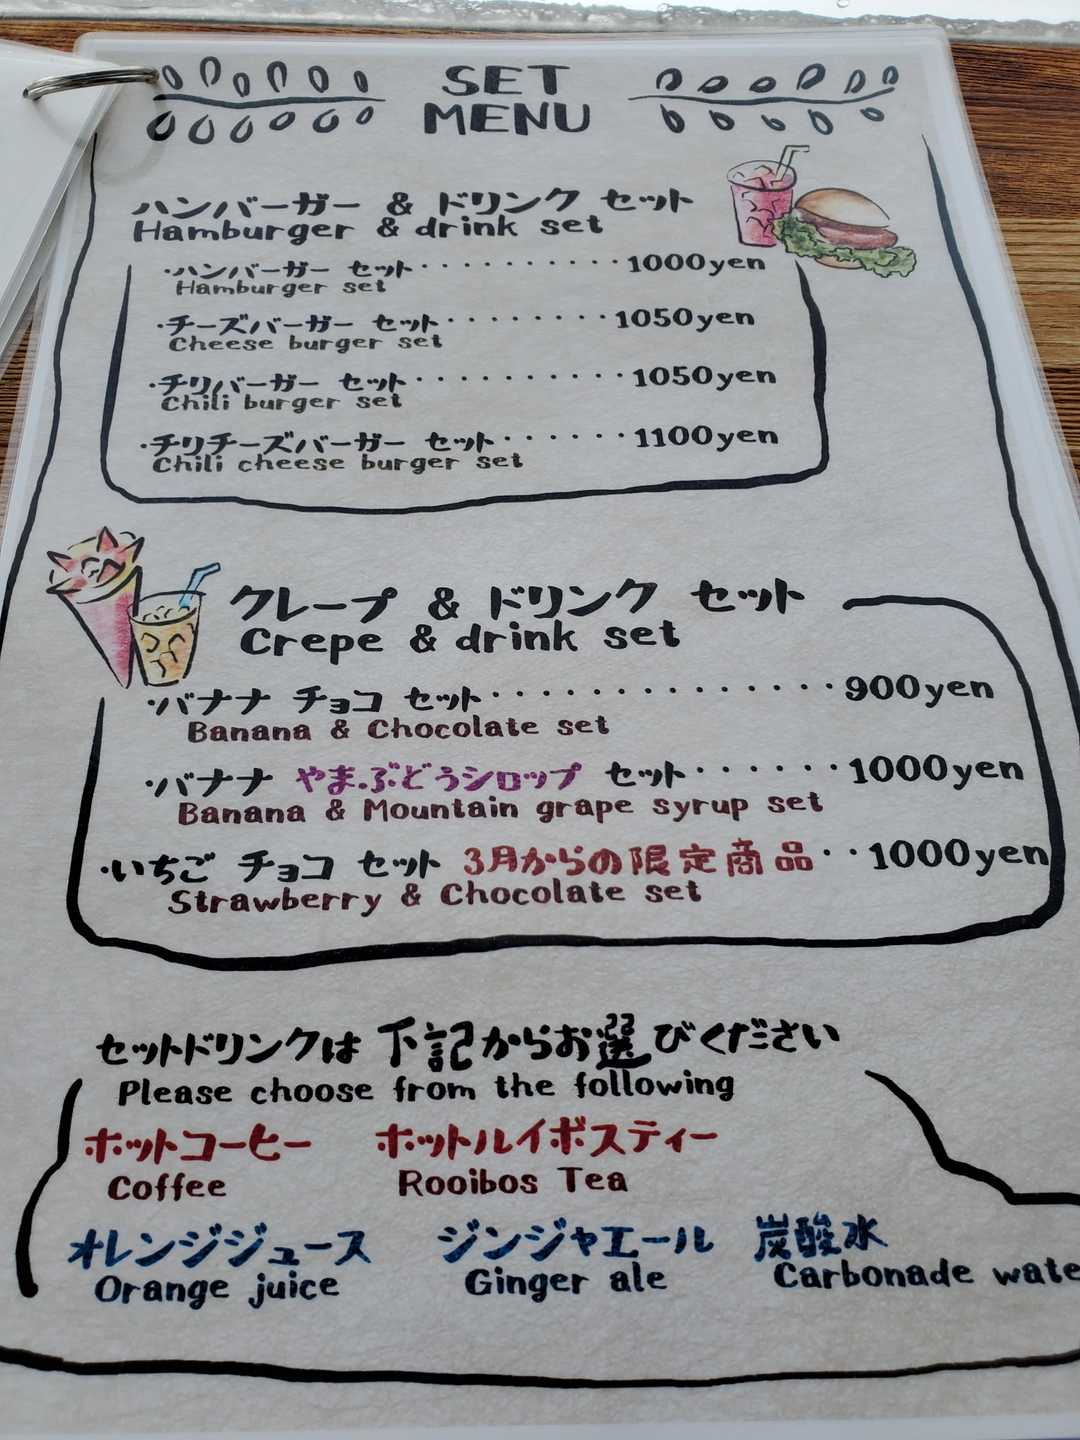 SET
MENU
ハンバーガー & ドリンク セット
Hamburger & drink set
・ハンバーガー セット・・・・・・・・・・1000yen
Hamburger set
・チーズバーガー セット・・・・・・・・1050yen
Cheese burger set
・チリバーガー セット・・・・・・・・・・1050yen
Chili burger set
・チリチーズバーガー セット・・・・・・1100yen
Chili cheese burger set
クレープ & ドリンク セット
Crepe & drink set
・バナナ チョコ セット・・・・・・・・・・・・・・900yen
Banana & Chocolate set
・バナナ やまぶどうシロップ セット・・・・・・1000yen
Banana & Mountain grape syrup set
・いちご チョコ セット 3月からの限定商品・・1000yen
Strawberry & Chocolate set
セットドリンクは 下記からお選びください
Please choose from the following
ホットコーヒー ホットルイボスティー
Coffee Rooibos Tea
オレンジジュース ジンジャエール 炭酸水
Orange juice Ginger ale Carbonade wate